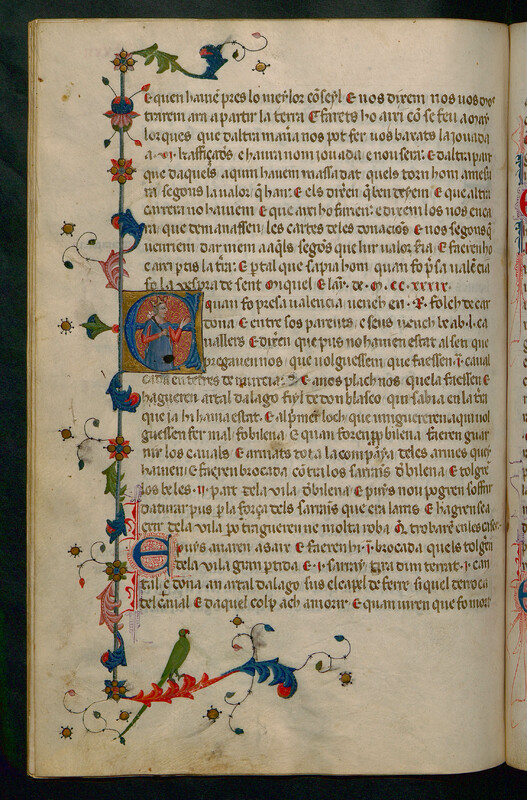 E quen hauiē pres lo meylor cōseyl E nos dixem nos uos mos
trarem ara a partir la terra E farets ho axi cō se feu a may
lorques que daltra maña nos pot fer uos baxats la jouada
a .vi. kafficades e haura nom jouada e nou sera: E daltra part
que daquels a qui hauem massa dat quels torn hom a mesu
ra segons la ualor q̄ han: E els dixerē q̄ ben deyem E que altra
carrera no hauem E que axi ho farien: e dixem los nos enca
ra que demanassen les cartes de les donacions E nos segons q̄
uenrien darmem a aq̄ls segōs que lur ualor seria E faeren ho
e axi ptis la tr̄a: E p tal que sapia hom quan fo p̄sa valēcia
fo la vespra de sent Miquel E lany de M. CC. XXXIX.
E quan fo presa ualencia uench en .R. folch de car
dona E entre sos parents e seus uench be ab .L. ca
uallers E dixeren que pus no hauien estat al seti que
pregauen nos que uolguessem que faessen .i. caual
cada en terres de murcia: E a nos plach nos que la faessen E
hagueren artal dalago fiyl de don blasco qui sabia en la tr̄a
que ja hi hauia estat. E al p̄mer loch que uingueren a qui uol
guessen fer mal fo bilena E quan foren pp bilena faeren guar
nir los cauals E armats tota la companya de les armes que y
hauien: E faeren brocada cōtra los sarraīs d bilena E tolgrē
los be les .ii. parts de la vila d bilena E puys nou pogren soffrir
datturar p̄us p la força dels sarraīs que era la mes E hagren sa a
exir de la vila po tingueren ne molta roba q̄ trobaren e les cases
E puys anaren a saix E faeren hi .i. brocada quels tolgrē
de la vila gran ptida E .i. sarray tira dun terrat .i. can
tal e dona a n artal dalago sus el capel de ferre si quel derroca
del caual E daquel colp ach a morir E quan uiren que fo mort